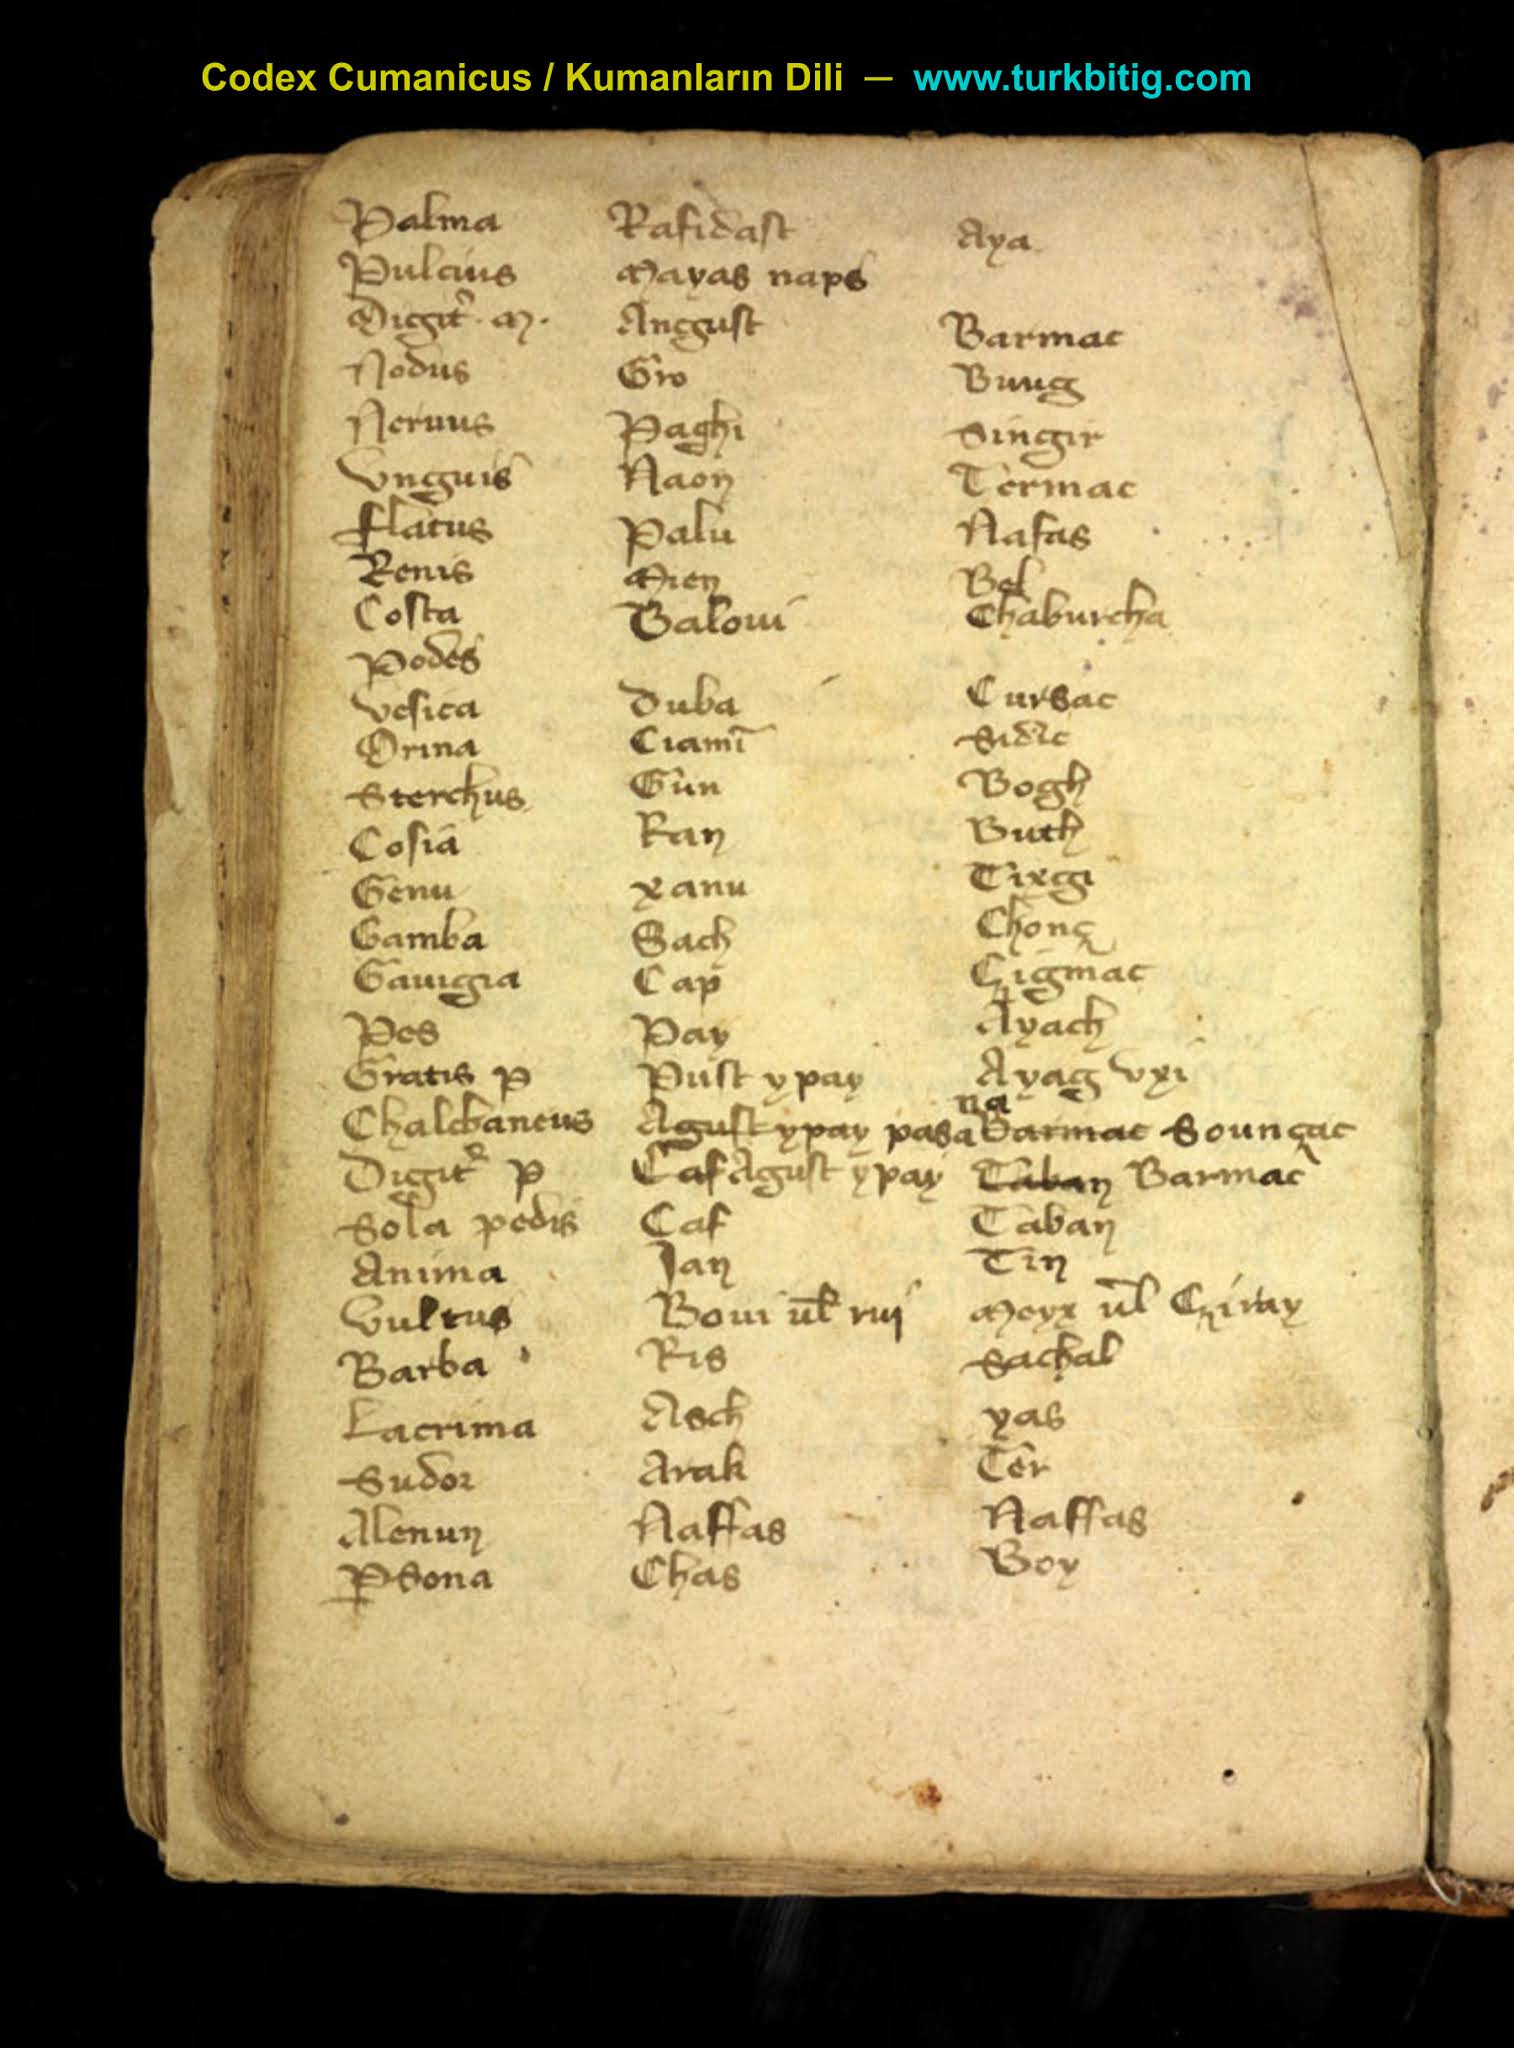 Codex Cumanicus / Kumanların Dili — www.turkbitig.com
Palma Rafidast Aya
Pulcius Mayas naps
Digit᷑ · M · Angust Barmac
Nodus Gro Buug
Neruus Paghi Singir
Vnguis Naon Termac
flatus Palu Nafas
Renis Mien Bel
Costa Baloui Chaburcha
Podes
Vesica Duba Cursac
Orina Ciamī Sidic
Sterchus Gun Bogh
Cosia Ran Buth
Genu Xanu Tixgi
Gamba Sach Chonç
Gauigia Cap Çigmac
Pes Pay Ayach
Gratis p Pust y pay Ayag vxi
Chalcbaneus Agust ypay pasana barmac Sounçac
Digit᷑ p Caf Agust y pay Taban Barmac
Sola pedis Caf Taban
Anima Jan Tin
Vultus Boui ul̄ rui Meyx ul̄ Çiray
Barba Ris Sachal
Lacrima Asch yas
Sudor Arak Ter
Alenun Naffas Naffas
Ꝑsona Chas Boy